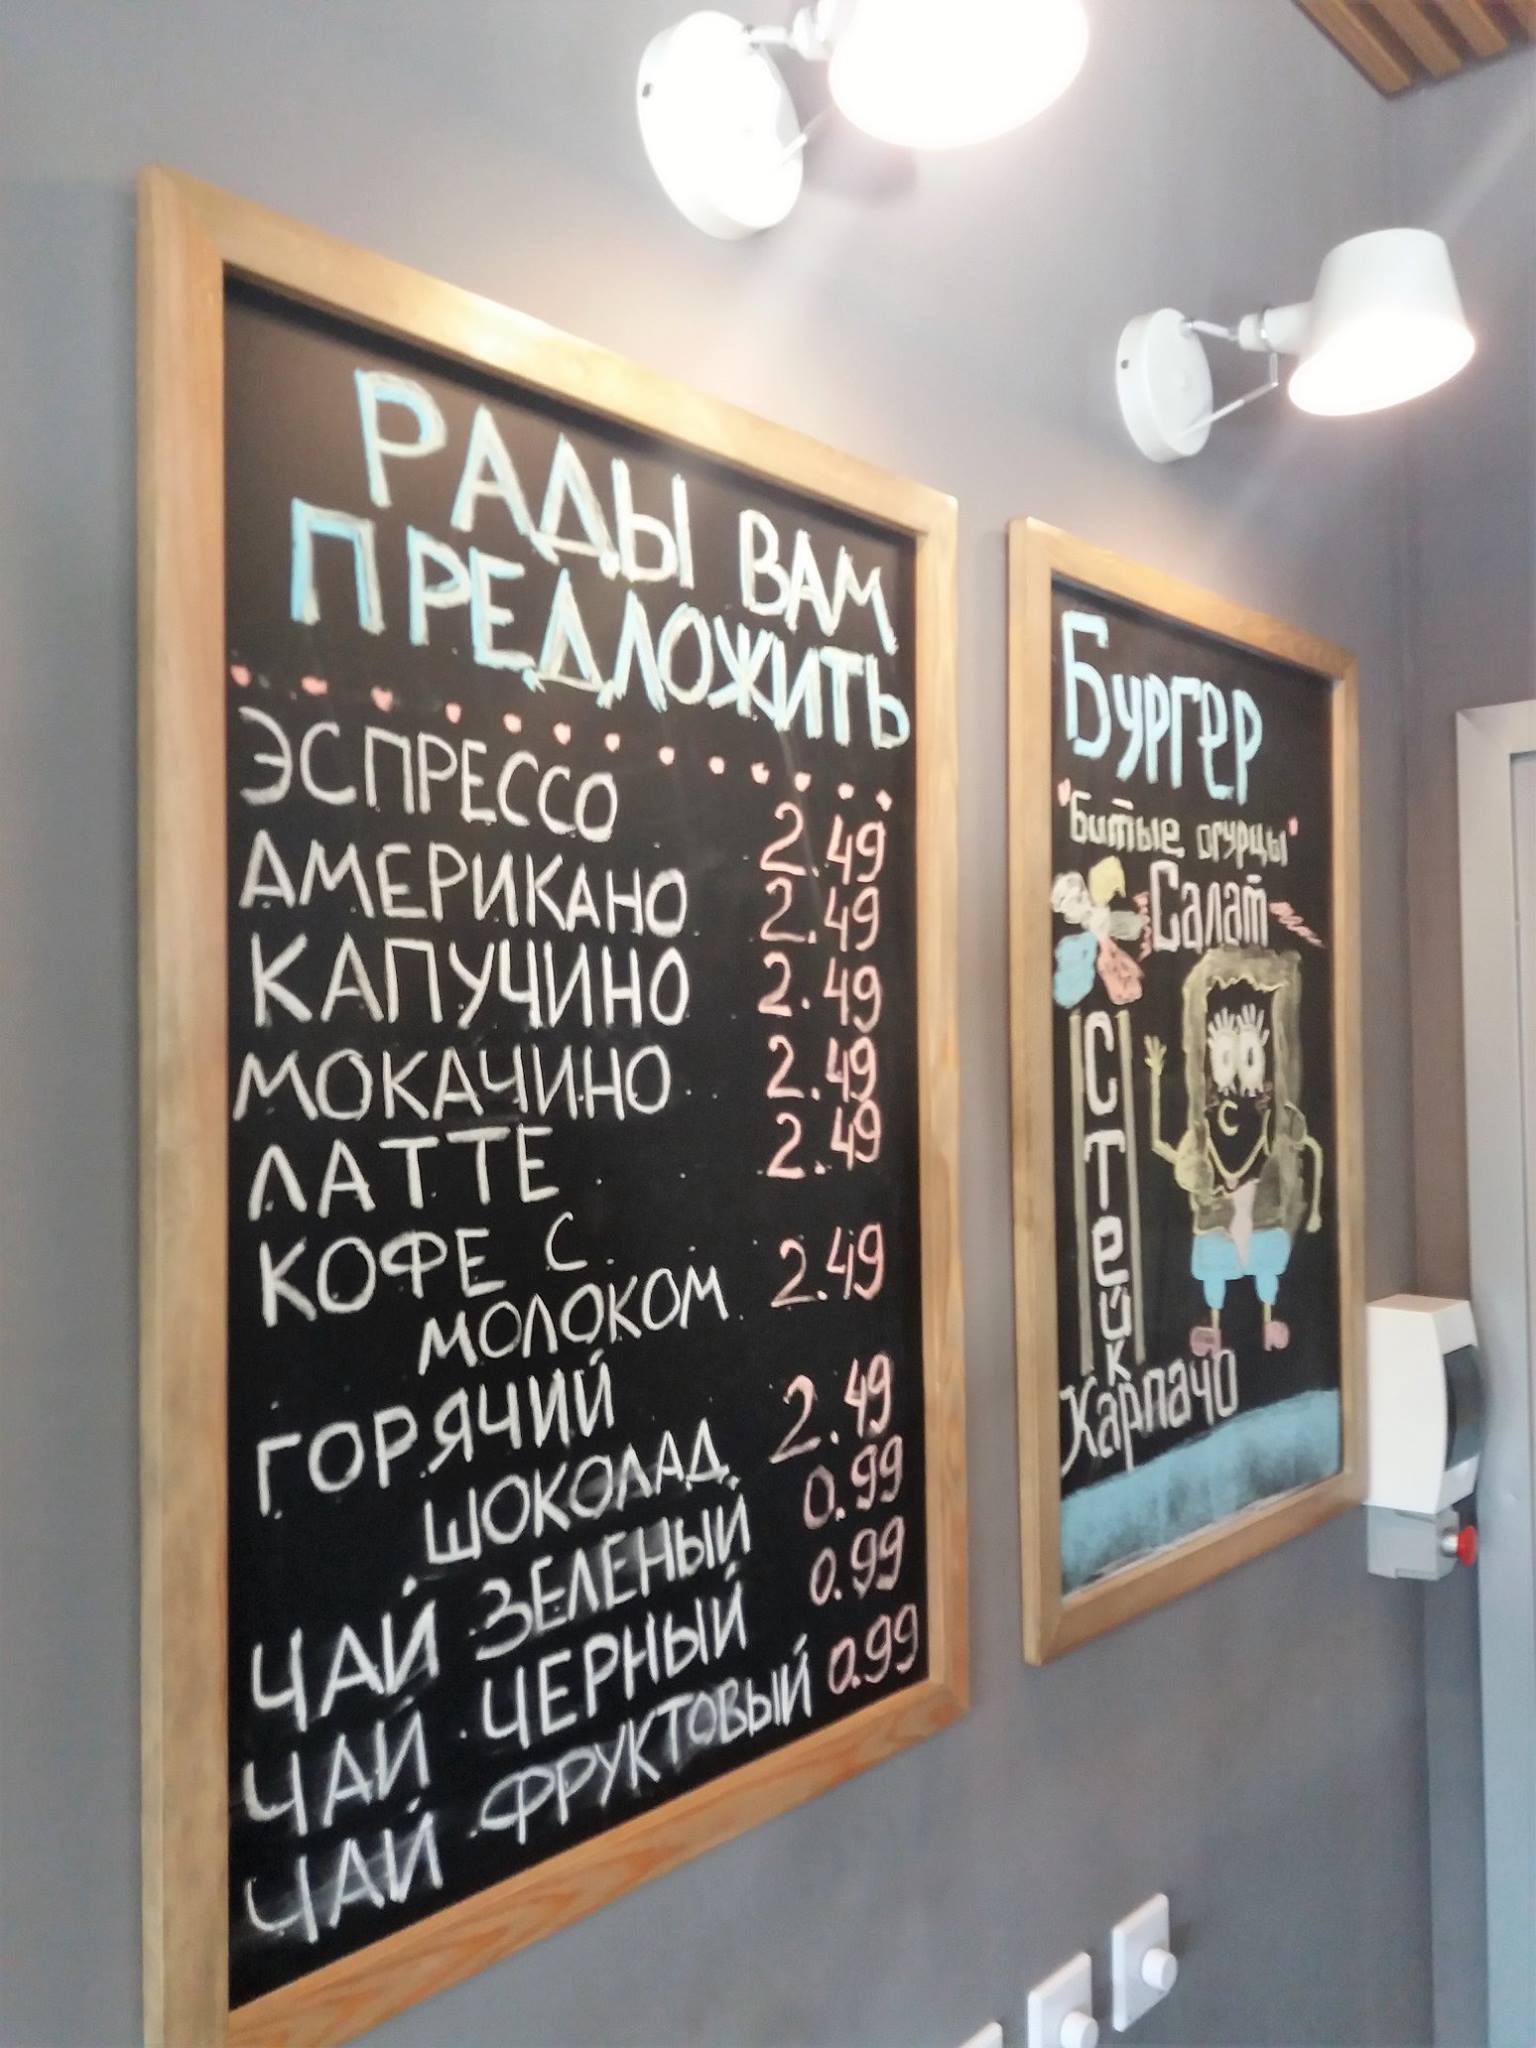 РАДЫ ВАМ
ПРЕДЛОЖИТЬ
ЭСПРЕССО 2.49
АМЕРИКАНО 2.49
КАПУЧИНО 2.49
МОКАЧИНО 2.49
ЛАТТЕ 2.49
КОФЕ С 2.49
МОЛОКОМ
ГОРЯЧИЙ 2.49
ШОКОЛАД
ЧАЙ ЗЕЛЕНЫЙ 0.99
ЧАЙ ЧЕРНЫЙ 0.99
ЧАЙ ФРУКТОВЫЙ 0.99
Бургер
"Битые огурцы"
Салат
Стейк
Карпачо